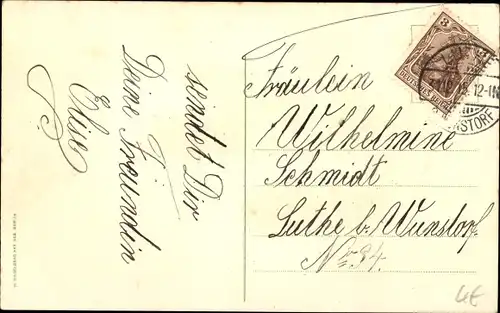 sendet Dir
Deine Freundin
Elise
Fräulein
Wilhelmine
Schmidt
Luthe b. Wunstorf
No 94.
3
DEUTSCHES REICH
12-1N
STORF
4€